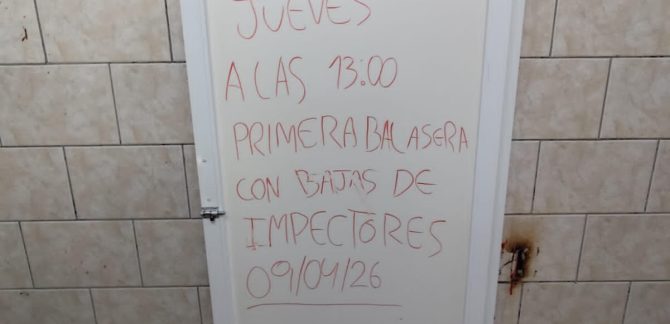 JUEVES
A LAS 13:00
PRIMERA BALASERA
CON BAJAS DE
IMPECTORES
09/04/26